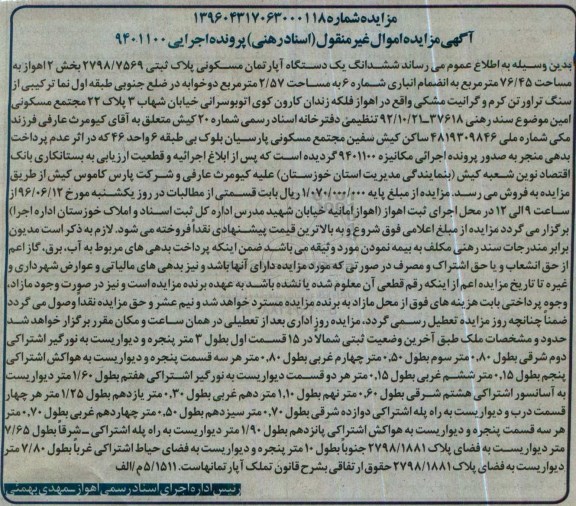 مزایده شماره ۱۳۹۶۰۴۳۱۷۰۶۳۰۰۰۱۱۸
آگهی مزایده اموال غیر منقول (اسناد رهنی) پرونده اجرایی ۹۴۰۱۱۰۰
بدین وسیله به اطلاع عموم می رساند ششدانگ یک دستگاه آپارتمان مسکونی پلاک ثبتی ۲۷۹۸/۷۵۶۹ بخش ۲ اهواز به
مساحت ۷۶/۴۵ مترمربع به انضمام انباری شماره ۶ به مساحت ۲/۵۷ مترمربع دوخوابه در ضلع جنوبی طبقه اول نما ترکیبی از
سنگ تراورتن کرم و گرانیت مشکی واقع در اهواز فلکه زندان کارون کوی اتوبوسرانی خیابان شهاب ۳ پلاک ۲۲ مجتمع مسکونی
امین موضوع سند رهنی ۳۷۶۱۸ـ۹۲/۱۰/۲۱ تنظیمی دفترخانه اسناد رسمی شماره ۲۰ کیش متعلق به آقای کیومرث عارفی فرزند
مکی شماره ملی ۴۸۱۹۳۰۹۸۴۶ ساکن کیش سفین مجتمع مسکونی پارسیان بلوک بی طبقه ۶ واحد ۴۶ که در اثر عدم پرداخت
بدهی منجر به صدور پرونده اجرائی مکانیزه ۹۴۰۱۱۰۰ گردیده است که پس از ابلاغ اجرائیه و قطعیت ارزیابی به بستانکاری بانک
اقتصاد نوین شعبه کیش (بنمایندگی مدیریت استان خوزستان) علیه کیومرث عارفی و شرکت پارس کاموس کیش از طریق
مزایده به فروش می رسد. مزایده از مبلغ پایه ۱/۰۷۰/۰۰۰/۰۰۰ ریال بابت قسمتی از مطالبات در روز یکشنبه مورخ ۹۶/۰۶/۱۲ از
ساعت ۹ الی ۱۲ در محل اجرای ثبت اهواز (اهواز امانیه خیابان شهید مدرس اداره کل ثبت اسناد و املاک خوزستان اداره اجرا)
برگزار می گردد مزایده از مبلغ اعلامی فوق شروع و به بالاترین قیمت پیشنهادی نقداً فروخته می شود. لازم به ذکر است مدیون
برابر مندرجات سند رهنی مکلف به بیمه نمودن مورد وثیقه می باشد ضمن اینکه پرداخت بدهی های مربوط به آب، برق، گاز اعم
از حق انشعاب و یا حق اشتراک و مصرف در صورتی که مورد مزایده دارای آنها باشد و نیز بدهی های مالیاتی و عوارض شهرداری و
غیره تا تاریخ مزایده اعم از اینکه رقم قطعی آن معلوم شده یا نشده باشد به عهده برنده مزایده است و نیز در صورت وجود مازاد،
وجوه پرداختی بابت هزینه های فوق از محل مازاد به برنده مزایده مسترد خواهد شد و نیم عشر و حق مزایده نقداً وصول می گردد
ضمناً چنانچه روز مزایده تعطیل رسمی گردد، مزایده روز اداری بعد از تعطیلی در همان ساعت و مکان مقرر برگزار خواهد شد
حدود و مشخصات ملک طبق آخرین وضعیت ثبتی شمالا در ۱۵ قسمت اول بطول ۳ متر پنجره و دیواریست به نورگیر اشتراکی
دوم شرقی بطول ۰.۸۰ متر سوم بطول ۰.۵۰ متر چهارم غربی بطول ۰.۸۰ متر هر سه قسمت پنجره و دیواریست به هواکش اشتراکی
پنجم بطول ۰.۱۵ متر ششم غربی بطول ۰.۱۵ متر هر دو قسمت دیواریست به نورگیر اشتراکی هفتم بطول ۱/۶۰ متر دیواریست
به آسانسور اشتراکی هشتم شرقی بطول ۰.۶۰ متر نهم بطول ۱.۱۰ متر دهم غربی بطول ۰.۳۰ متر یازدهم بطول ۱/۲۵ متر هر چهار
قسمت درب و دیواریست به راه پله اشتراکی دوازده شرقی بطول ۰.۷۰ متر سیزدهم بطول ۰.۵۰ متر چهاردهم غربی بطول ۰.۷۰ متر
هر سه قسمت پنجره و دیواریست به هواکش اشتراکی پانزدهم بطول ۱/۹۰ متر دیواریست به راه پله اشتراکی ـ شرقاً بطول ۷/۶۵
متر دیواریست به فضای پلاک ۲۷۹۸/۱۸۸۱ جنوباً بطول ۱۰ متر پنجره و دیواریست به فضای حیاط اشتراکی غرباً بطول ۷/۸۰ متر
دیواریست به فضای پلاک ۲۷۹۸/۱۸۸۱ حقوق ارتفاقی بشرح قانون تملک آپارتمانهاست. ۵/۱۵۱۱م/الف
رئیس اداره اجرای اسناد رسمی اهواز ـ مهدی بهمئی